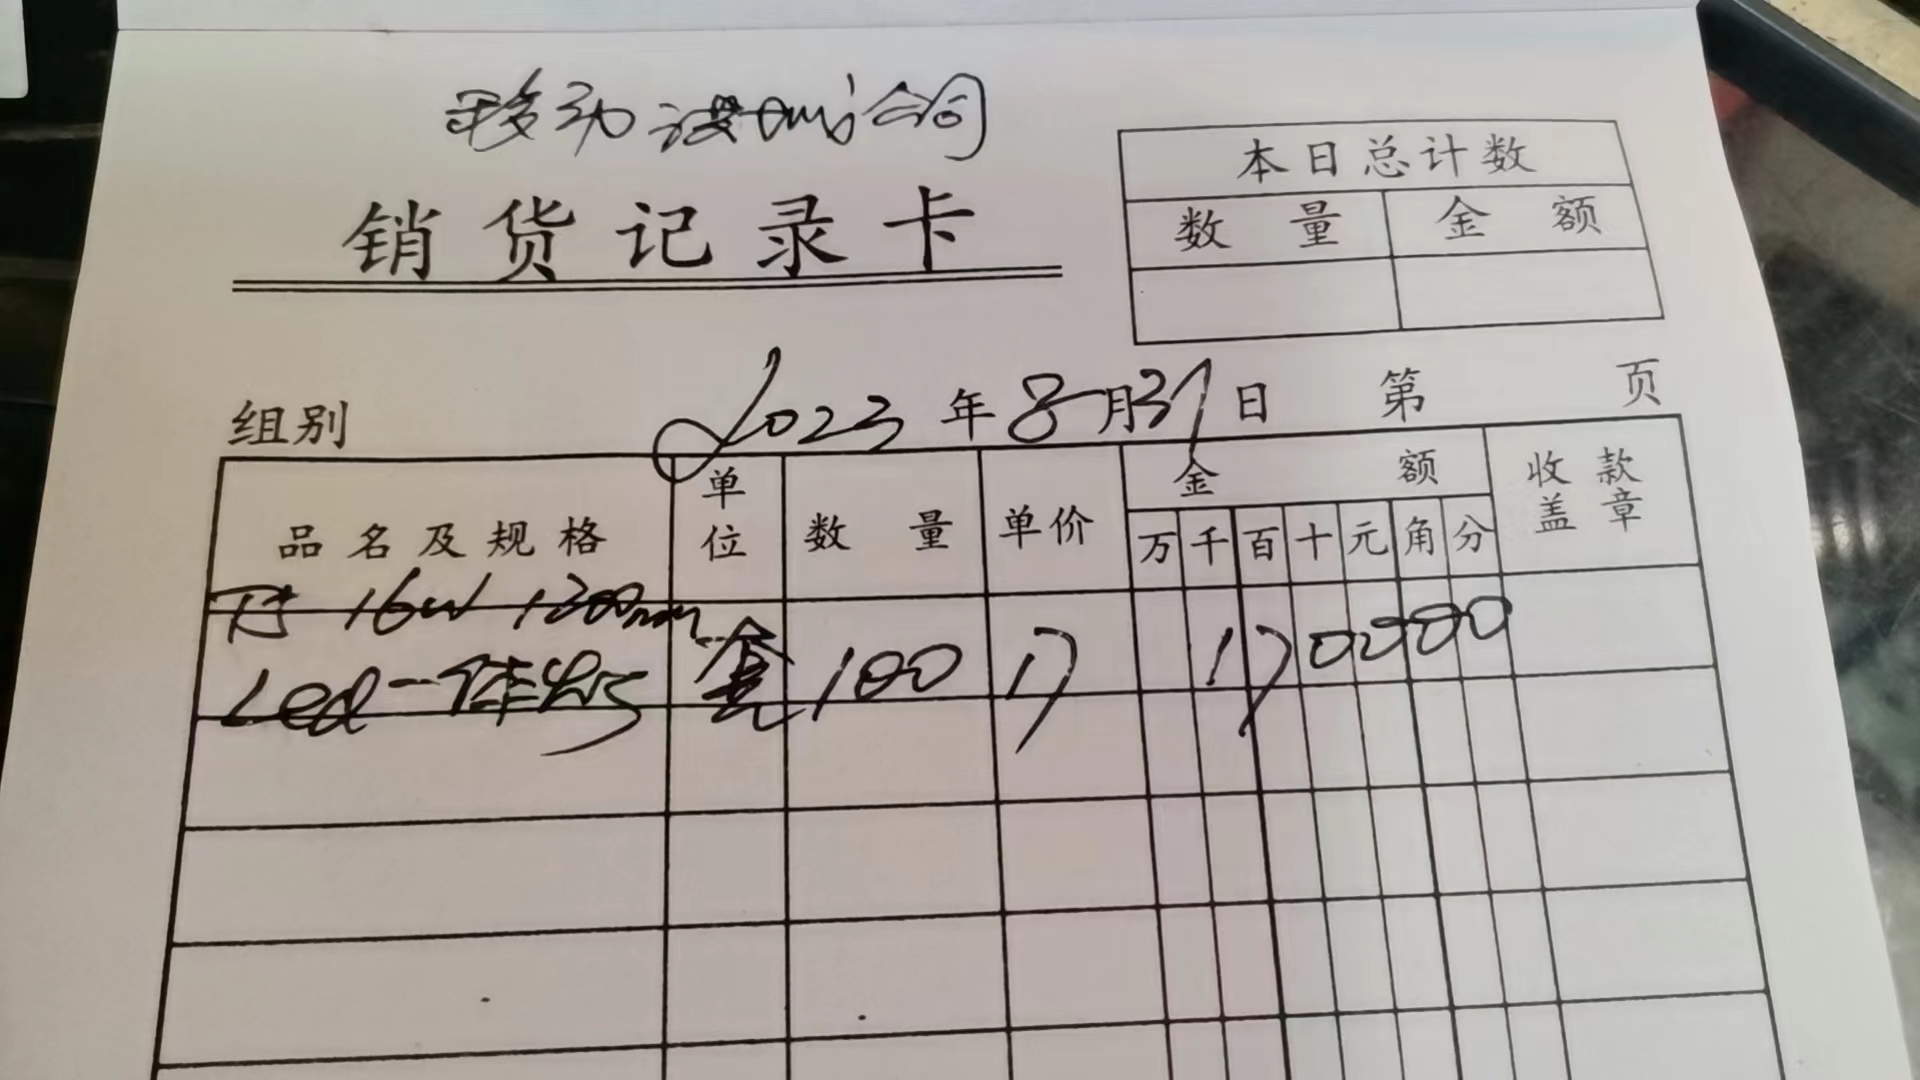 移动 公司
销货记录卡
本日总计数
数量 金额
组别 2023年8月31日 第 页
品名及规格 单位 数量 单价 金额 收款盖章
万 千 百 十 元 角 分
16w 1200mm
Led一体 套 100 17 1700000